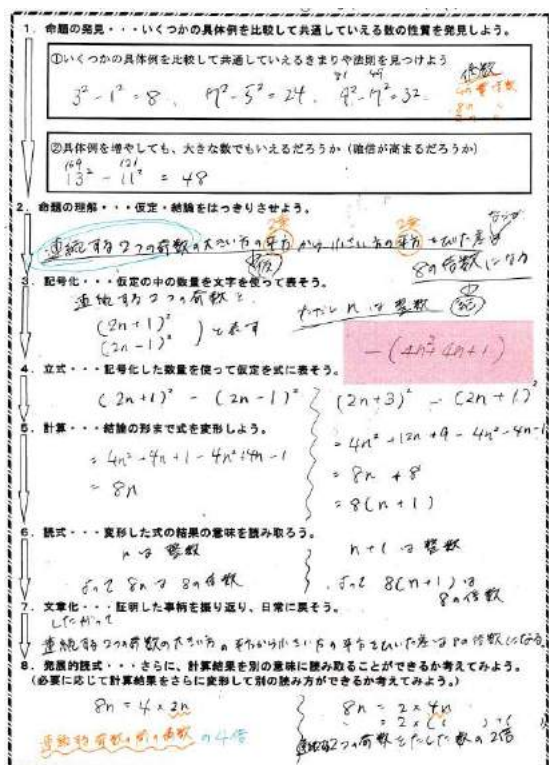 1．命題の発見・・・いくつかの具体例を比較して共通していえる数の性質を発見しよう。
①いくつかの具体例を比較して共通していえるきまりや法則を見つけよう
81 49
3²-1²=8、 7²-5²=24、 9²-7²=32
倍数
②具体例を増やしても、大きな数でもいえるだろうか（確信が高まるだろうか）
169 121
13² - 11² = 48
2．命題の理解・・・仮定・結論をはっきりさせよう。
2乗 2乗 ならば
連続する2つの奇数の大きい方の平方から小さい方の平方をひいた差は
8の倍数になる
3．記号化・・・仮定の中の数量を文字を使って表そう。
連続する2つの奇数を ただしnは整数
(2n+1)²
(2n-1)² と表す
-(4n²+4n+1)
4．立式・・・記号化した数量を使って仮定を式に表そう。
(2n+1)² - (2n-1)² (2n+3)² - (2n+1)²
5．計算・・・結論の形まで式を変形しよう。
= 4n²+4n+1-4n²+4n-1 = 4n²+12n+9-4n²-4n-1
= 8n = 8n+8
= 8(n+1)
6．読式・・・変形した式の結果の意味を読み取ろう。
nは整数 n+1は整数
よって 8nは8の倍数 よって 8(n+1)は
8の倍数
7．文章化・・・証明した事柄を振り返り、日常に戻そう。
したがって
連続する2つの奇数の大きい方の平方から小さい方の平方をひいた差は8の倍数になる。
8．発展的読式・・・さらに、計算結果を別の意味に読み取ることができるか考えてみよう。
（必要に応じて計算結果をさらに変形して別の読み方ができるか考えてみよう。）
8n = 4×2n 8n = 2×4n
連続する奇数の間の偶数の4倍 連続する2つの奇数をたした数の2倍